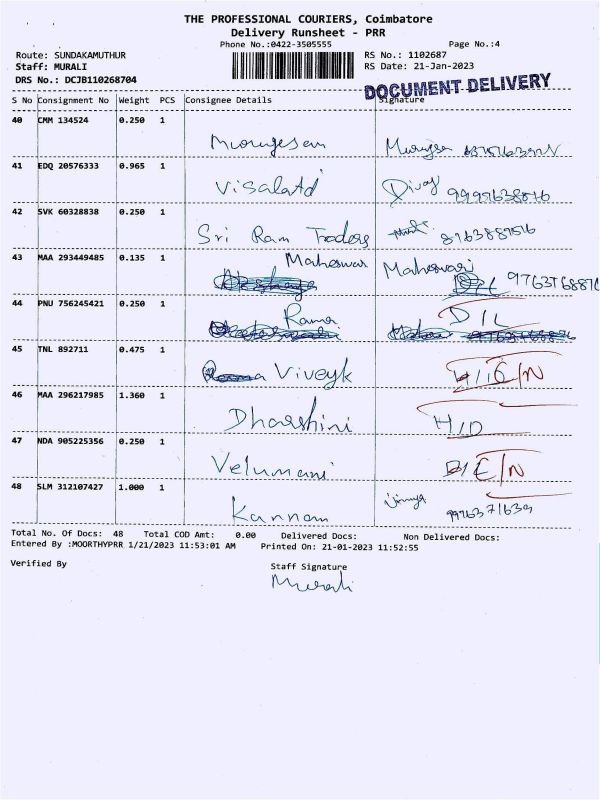 THE PROFESSIONAL COURIERS, Coimbatore
Delivery Runsheet - PRR
Phone No.:0422-3505555 Page No.:4
Route: SUNDAKAMUTHUR RS No.: 1102687
Staff: MURALI RS Date: 21-Jan-2023
DRS No.: DCJB110268704
DOCUMENT DELIVERY
S No Consignment No Weight PCS Consignee Details Signature
40 CMM 134524 0.250 1
Murugesan
41 EDQ 20576333 0.965 1
Visalatd
42 SVK 60328838 0.250 1
Sri Ram Traders
43 MAA 293449485 0.135 1
Maheswari Maheswari
44 PNU 756245421 0.250 1
Rama D/L
45 TNL 892711 0.475 1
Viveyk
46 MAA 296217985 1.360 1
Dharshini H/D
47 NDA 905225356 0.250 1
Velumani
48 SLM 312107427 1.000 1
Kannam
Total No. Of Docs: 48 Total COD Amt: 0.00 Delivered Docs: Non Delivered Docs:
Entered By :MOORTHYPRR 1/21/2023 11:53:01 AM Printed On: 21-01-2023 11:52:55
Verified By Staff Signature
Murali